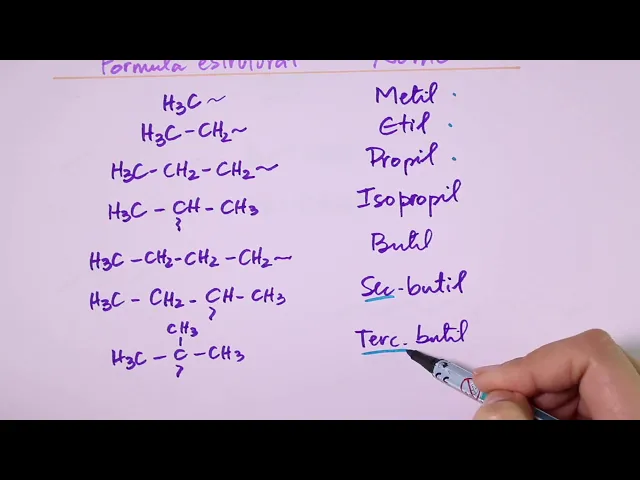 Formula estrutural Nome
H3C~ Metil
H3C-CH2~ Etil
H3C-CH2-CH2~ Propil
H3C-CH-CH3 Isopropil
H3C-CH2-CH2-CH2~ Butil
H3C-CH2-CH-CH3 Sec-butil
CH3
H3C-C-CH3 Terc-butil